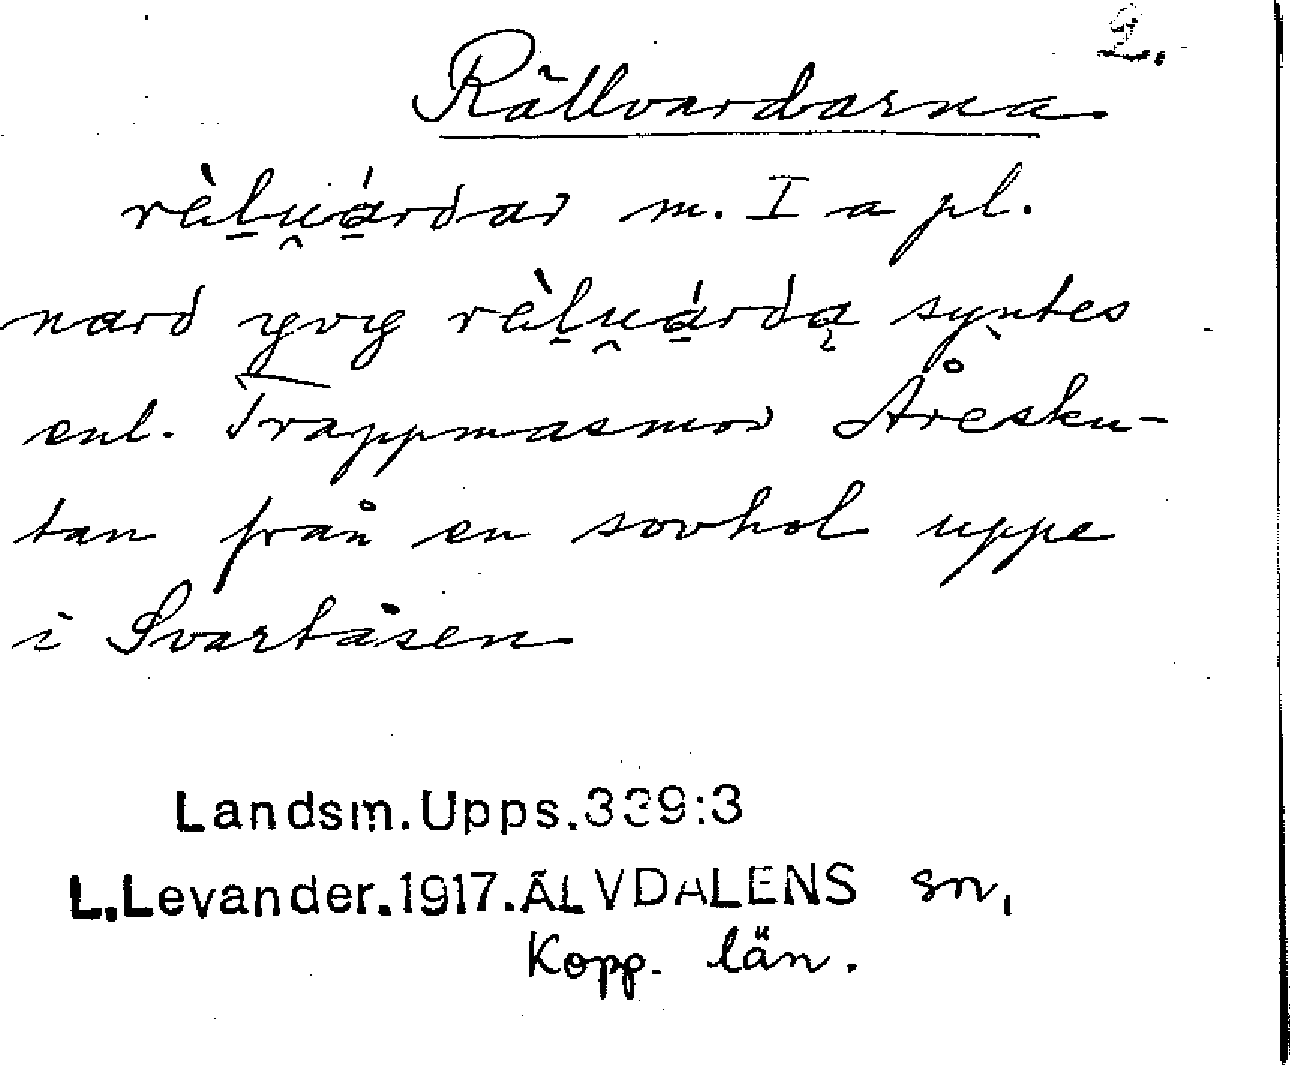 2.
Rällvardarna
rèl̠u̯á̠rdar m. I a pl.
nord yvy rèl̠u̯á̠rdą syntes
enl. Trappmasmor Åresku-
tan från en sovhol uppe
i Svartåsen
Landsm.Upps.339:3
L.Levander.1917.ÄLVDALENS sn,
Kopp. län.